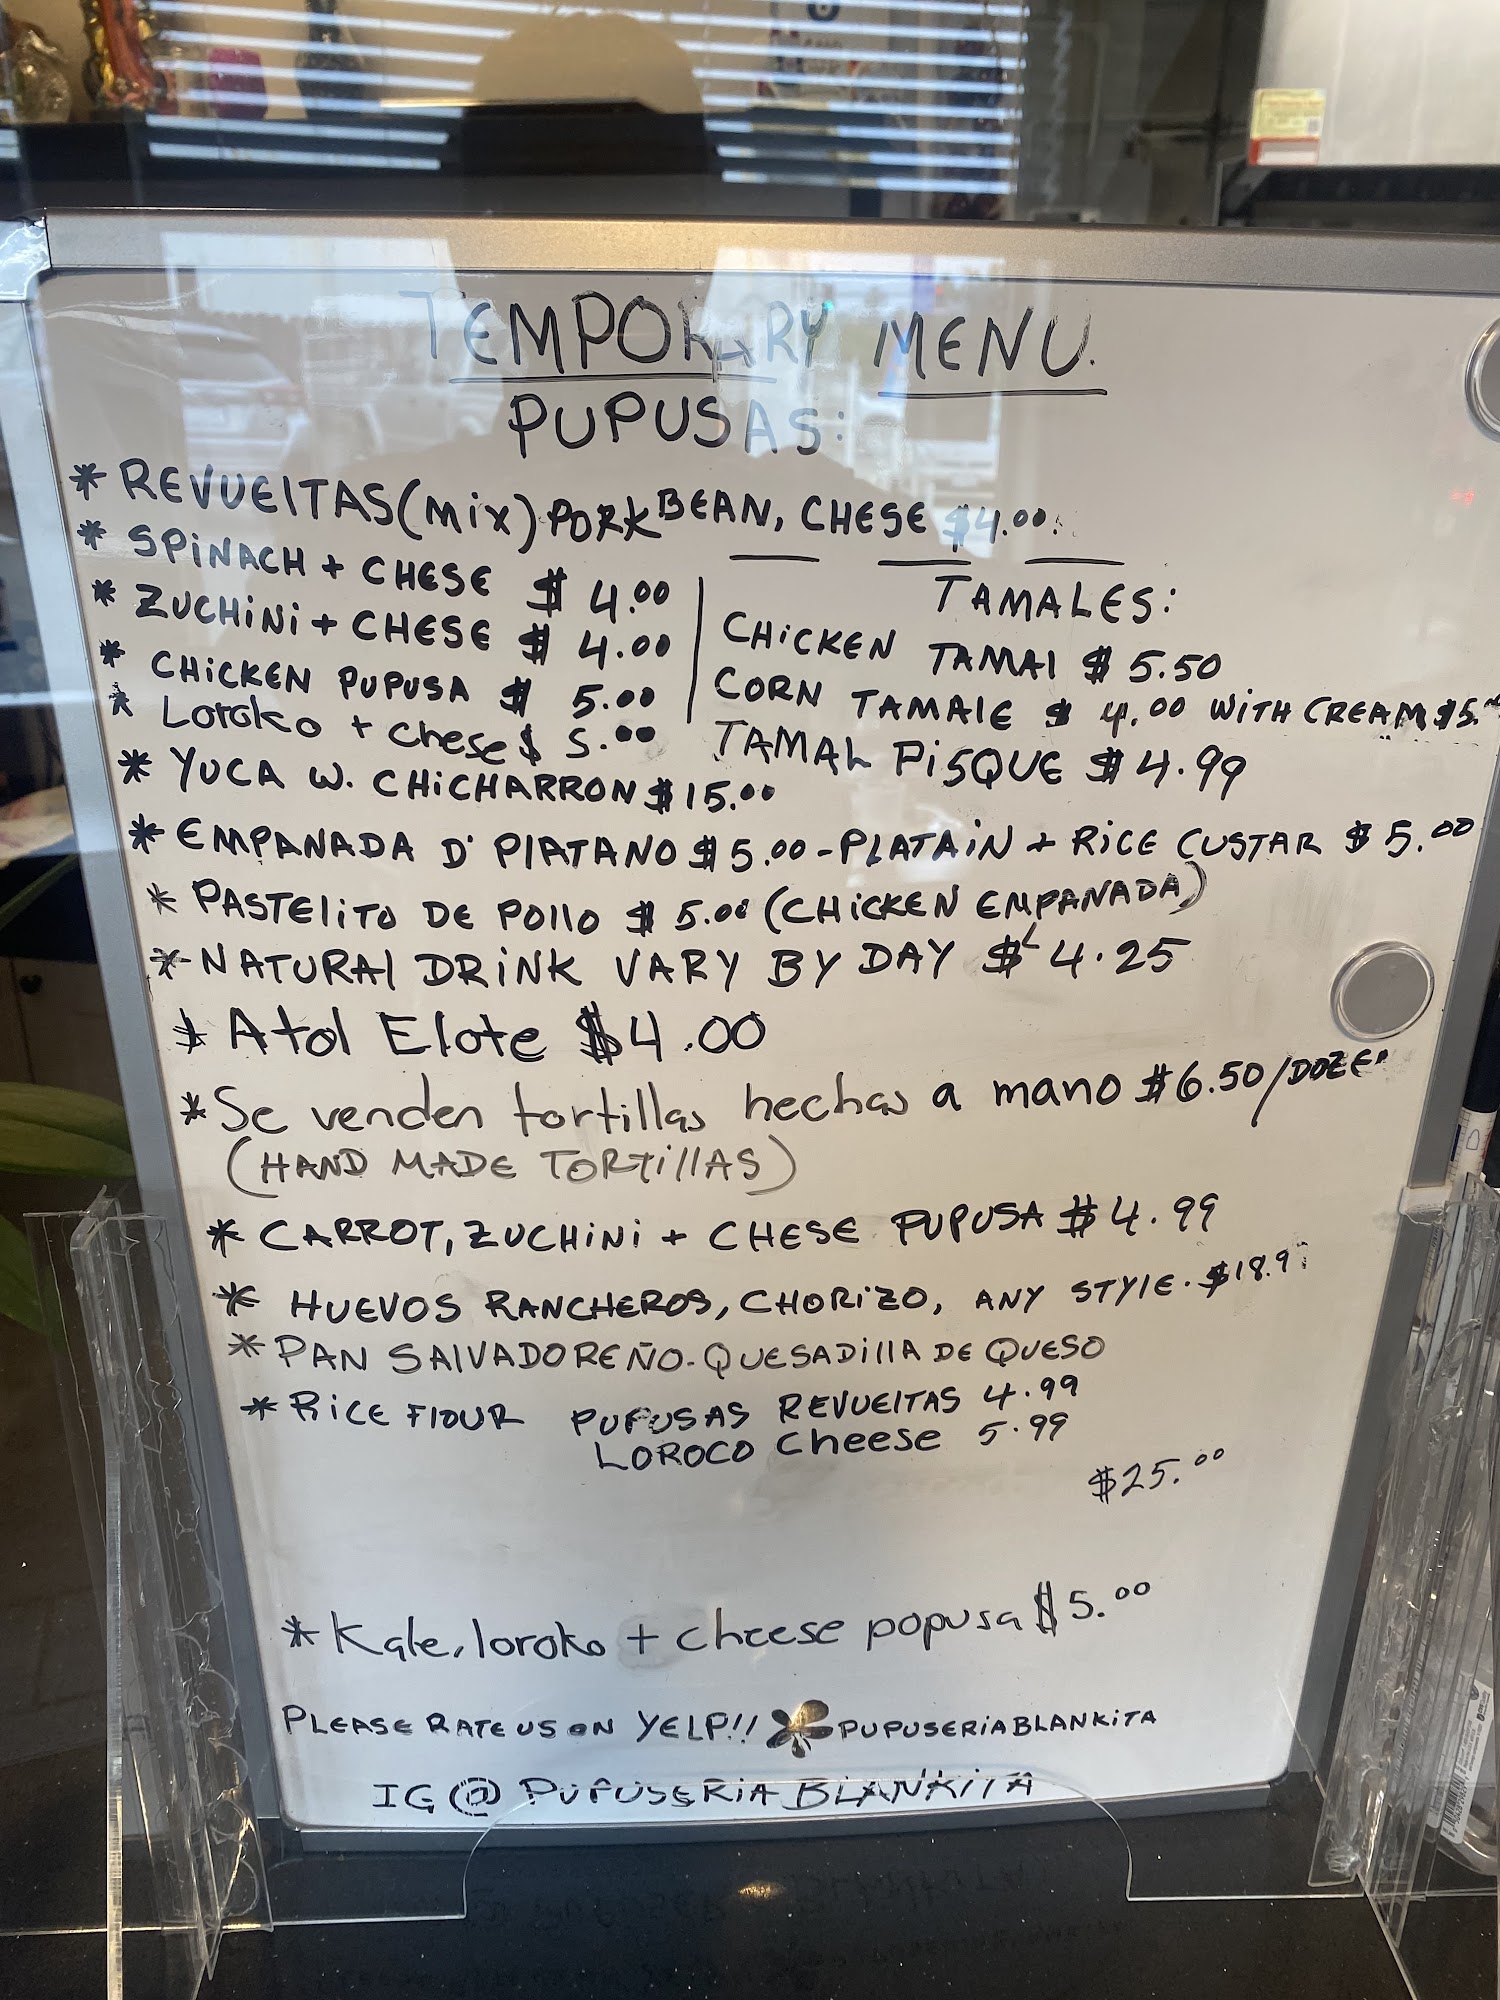 TEMPORARY MENU.
PUPUSAS:
* REVUEITAS (MIX) PORK BEAN, CHESE $4.00
* SPINACH + CHESE $ 4.00
* ZUCHINI + CHESE $ 4.00
* CHICKEN PUPUSA $ 5.00
* Loroko + chese $ 5.00
TAMALES:
CHICKEN TAMAI $ 5.50
CORN TAMAIE $ 4.00 WITH CREAM $5.
TAMAL PISQUE $ 4.99
* YUCA W. CHICHARRON $15.00
* EMPANADA D' PIATANO $5.00 - PLATAIN + RICE CUSTAR $ 5.00
* PASTELITO DE POIIO $ 5.00 (CHICKEN EMPANADA)
* NATURAI DRINK VARY BY DAY $ 4.25
* Atol Elote $4.00
* Se venden tortillas hechas a mano $6.50/DOZEN
(HAND MADE TORTIIIAS)
* CARROT, ZUCHINI + CHESE PUPUSA $4.99
* HUEVOS RANCHEROS, CHORIZO, ANY STYLE. $18.9
* PAN SAIVADOREÑO. QUESADIIIA DE QUESO
* RICE FIOUR PUPUSAS REVUEITAS 4.99
LOROCO cheese 5.99
$25.00
* Kale, loroko + cheese popusa $5.00
PLEASE RATE US ON YELP!! PUPUSERIABLANKITA
IG @ PUPUSERIABLANKITA